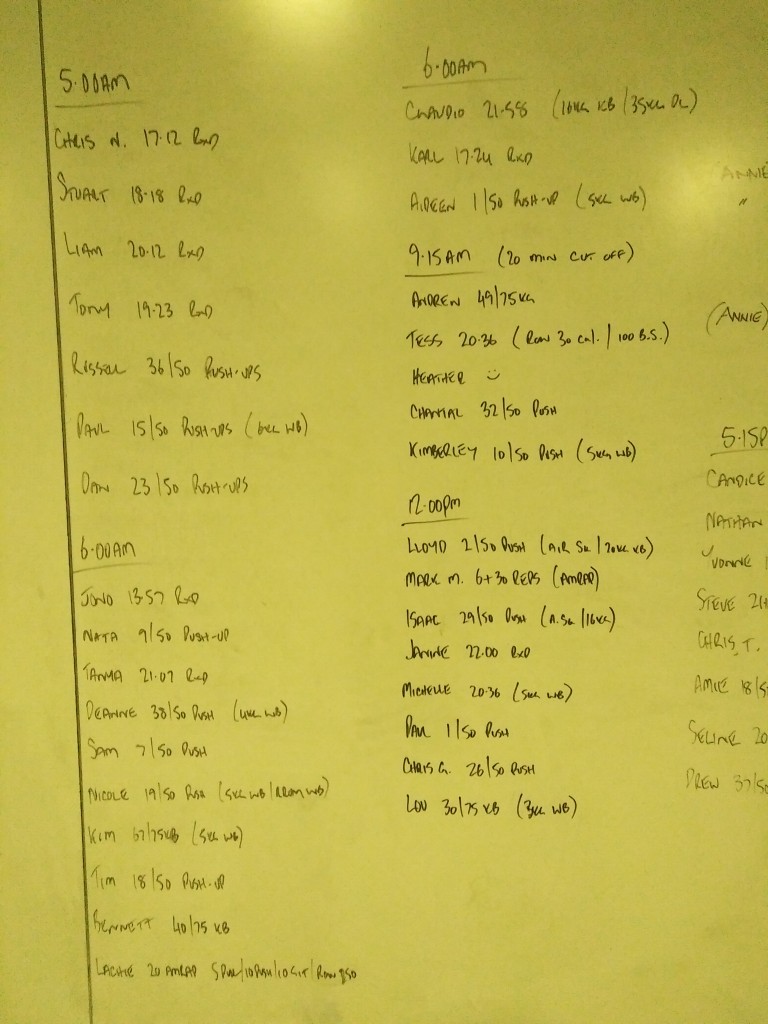 5.00AM
CHRIS N. 17.12 RXD
STUART 18.18 RXD
LIAM 20.12 RXD
TONY 19.23 RXD
RUSSELL 36/50 PUSH-UPS
PAUL 15/50 PUSH-UPS (6KG WB)
DAN 23/50 PUSH-UPS
6.00AM
JONO 13.57 RXD
NATA 9/50 PUSH-UP
TANYA 21.07 RXD
DEANNE 38/50 PUSH (4KG WB)
SAM 7/50 PUSH
NICOLE 19/50 PUSH (5KG WB/ WB)
KIM 67/75KB (5KG WB)
TIM 18/50 PUSH-UP
BENNETT 40/75 KB
LACHIE 20 AMRAP 5 PULL/10 PUSH/10 SIT/ROW 250
6.00AM
CLAUDIO 21.58 (16KG KB/35KG DL)
KARL 17.24 RXD
AIDEEN 1/50 PUSH-UP (5KG WB)
9.15AM (20 MIN CUT OFF)
ANDREW 49/75KG
TESS 20.36 (ROW 30 CAL./100 B.S.)
HEATHER
CHANTAL 32/50 PUSH
KIMBERLEY 10/50 PUSH (5KG WB)
12.00PM
LLOYD 2/50 PUSH (AIR SQ/20KG KB)
MARK M. 6+30 REPS (AMRAP)
ISAAC 29/50 PUSH (A.SQ/16KG)
JANINE 22.00 RXD
MICHELLE 20.36 (5KG WB)
PAUL 1/50 PUSH
CHRIS G. 26/50 PUSH
LOU 30/75 KB (3KG WB)
ANNIE
"
(ANNIE)
5.15P
CANDICE
NATHAN
YVONNE
STEVE 21
CHRIS T.
AMIE 18/5
SELINE 20
DREW 37/50